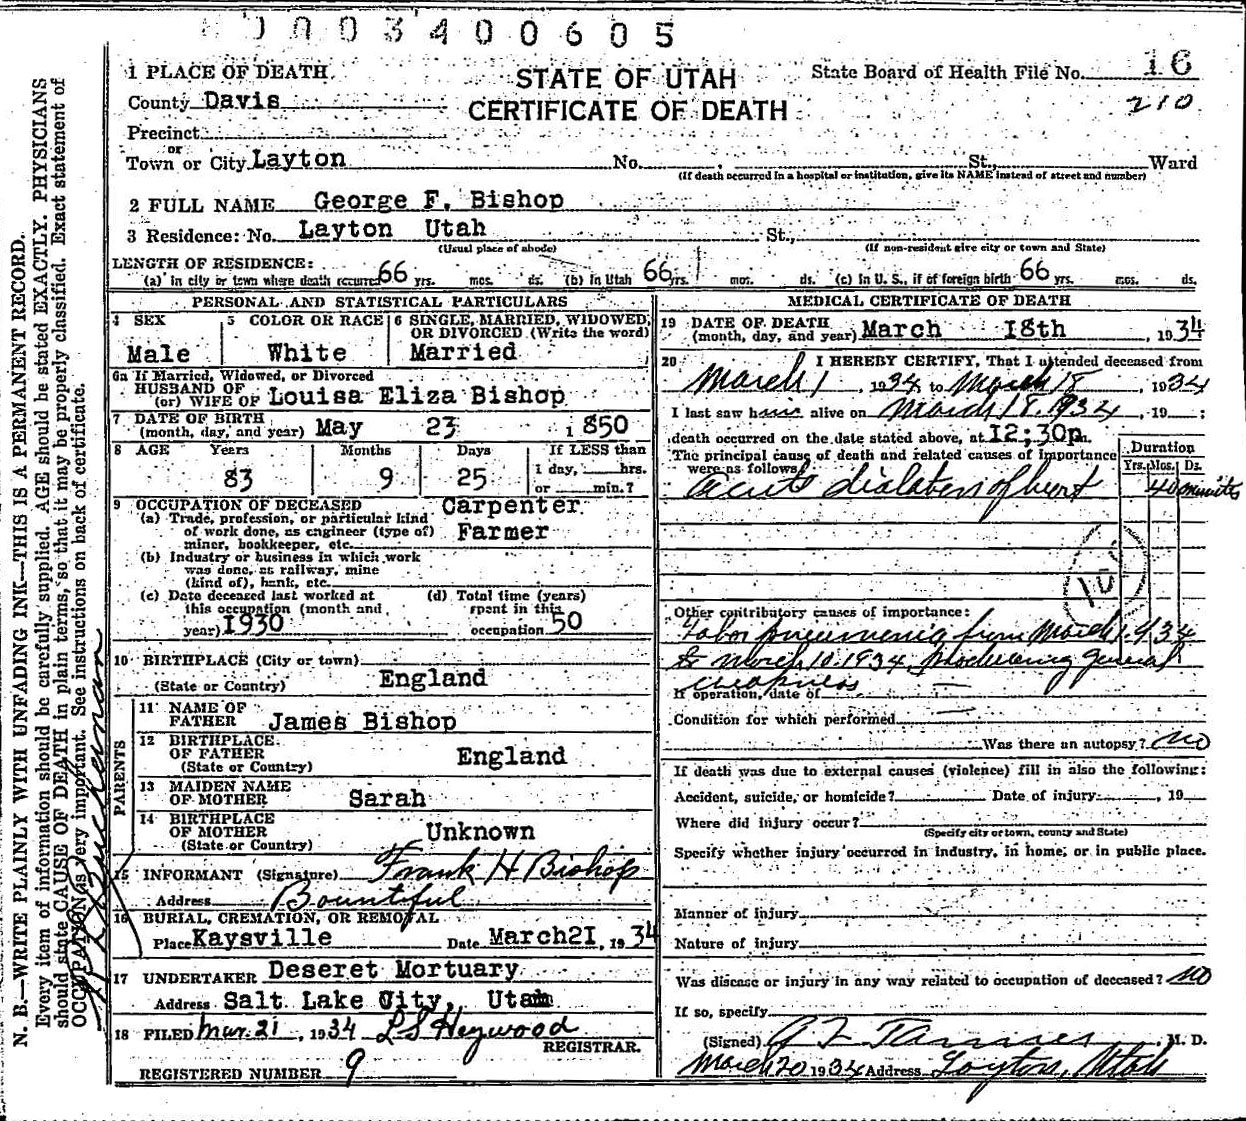 0003400605
1 PLACE OF DEATH
STATE OF UTAH
CERTIFICATE OF DEATH
State Board of Health File No. 16
210
County Davis
Precinct
or
Town or City Layton No. St., Ward
(If death occurred in a hospital or institution, give its NAME instead of street and number)
2 FULL NAME George F. Bishop
3 Residence: No. Layton Utah St.,
(Usual place of abode) (If non-resident give city or town and State)
LENGTH OF RESIDENCE:
(a) in city or town where death occurred 66 yrs. mos. ds. (b) In Utah 66 yrs. mos. ds. (c) In U. S., if of foreign birth 66 yrs. mos. ds.
PERSONAL AND STATISTICAL PARTICULARS
4 SEX
Male
5 COLOR OR RACE
White
6 SINGLE, MARRIED, WIDOWED,
OR DIVORCED (Write the word)
Married
6a If Married, Widowed, or Divorced
HUSBAND OF
(or) WIFE OF Louisa Eliza Bishop
7 DATE OF BIRTH
(month, day, and year) May 23 1850
8 AGE Years Months Days If LESS than
83 9 25 1 day, hrs.
or min.?
9 OCCUPATION OF DECEASED Carpenter
(a) Trade, profession, or particular kind
of work done, as engineer (type of) Farmer
miner, bookkeeper, etc.
(b) Industry or business in which work
was done, as railway, mine
(kind of), bank, etc.
(c) Date deceased last worked at
this occupation (month and
year) 1930
(d) Total time (years)
spent in this
occupation 50
10 BIRTHPLACE (City or town)
(State or Country) England
PARENTS
11 NAME OF
FATHER James Bishop
12 BIRTHPLACE
OF FATHER England
(State or Country)
13 MAIDEN NAME
OF MOTHER Sarah
14 BIRTHPLACE
OF MOTHER Unknown
(State or Country)
15 INFORMANT (Signature) Frank H Bishop
Address Bountiful
16 BURIAL, CREMATION, OR REMOVAL
Place Kaysville Date March 21, 1934
17 UNDERTAKER Deseret Mortuary
Address Salt Lake City, Utah
18 FILED Mar. 21, 1934 L S Heywood
REGISTRAR.
REGISTERED NUMBER 9
MEDICAL CERTIFICATE OF DEATH
19 DATE OF DEATH
(month, day, and year) March 18th, 1934
20 I HEREBY CERTIFY, That I attended deceased from
March 1, 1934, to March 18, 1934
I last saw him alive on March 18, 1934, 19 ;
death occurred on the date stated above, at 12;30p m.
The principal cause of death and related causes of importance
were as follows
Duration
Yrs. Mos. Ds.
acute dialation of heart 40 minuits
Other contributory causes of importance:
Lobar pneumenia from March 1, 934
to March 10, 1934, producing general
weakness
If operation, date of
Condition for which performed
Was there an autopsy? no
If death was due to external causes (violence) fill in also the following:
Accident, suicide, or homicide? Date of injury , 19
Where did injury occur?
(Specify city or town, county and State)
Specify whether injury occurred in industry, in home, or in public place.
Manner of injury
Nature of injury
Was disease or injury in any way related to occupation of deceased? no
If so, specify
(Signed) Tanner, M. D.
March 20 1934 Address Layton, Utah
N. B.—WRITE PLAINLY WITH UNFADING INK—THIS IS A PERMANENT RECORD.
Every item of information should be carefully supplied. AGE should be stated EXACTLY. PHYSICIANS
should state CAUSE OF DEATH in plain terms, so that it may be properly classified. Exact statement of
OCCUPATION is very important. See instructions on back of certificate.